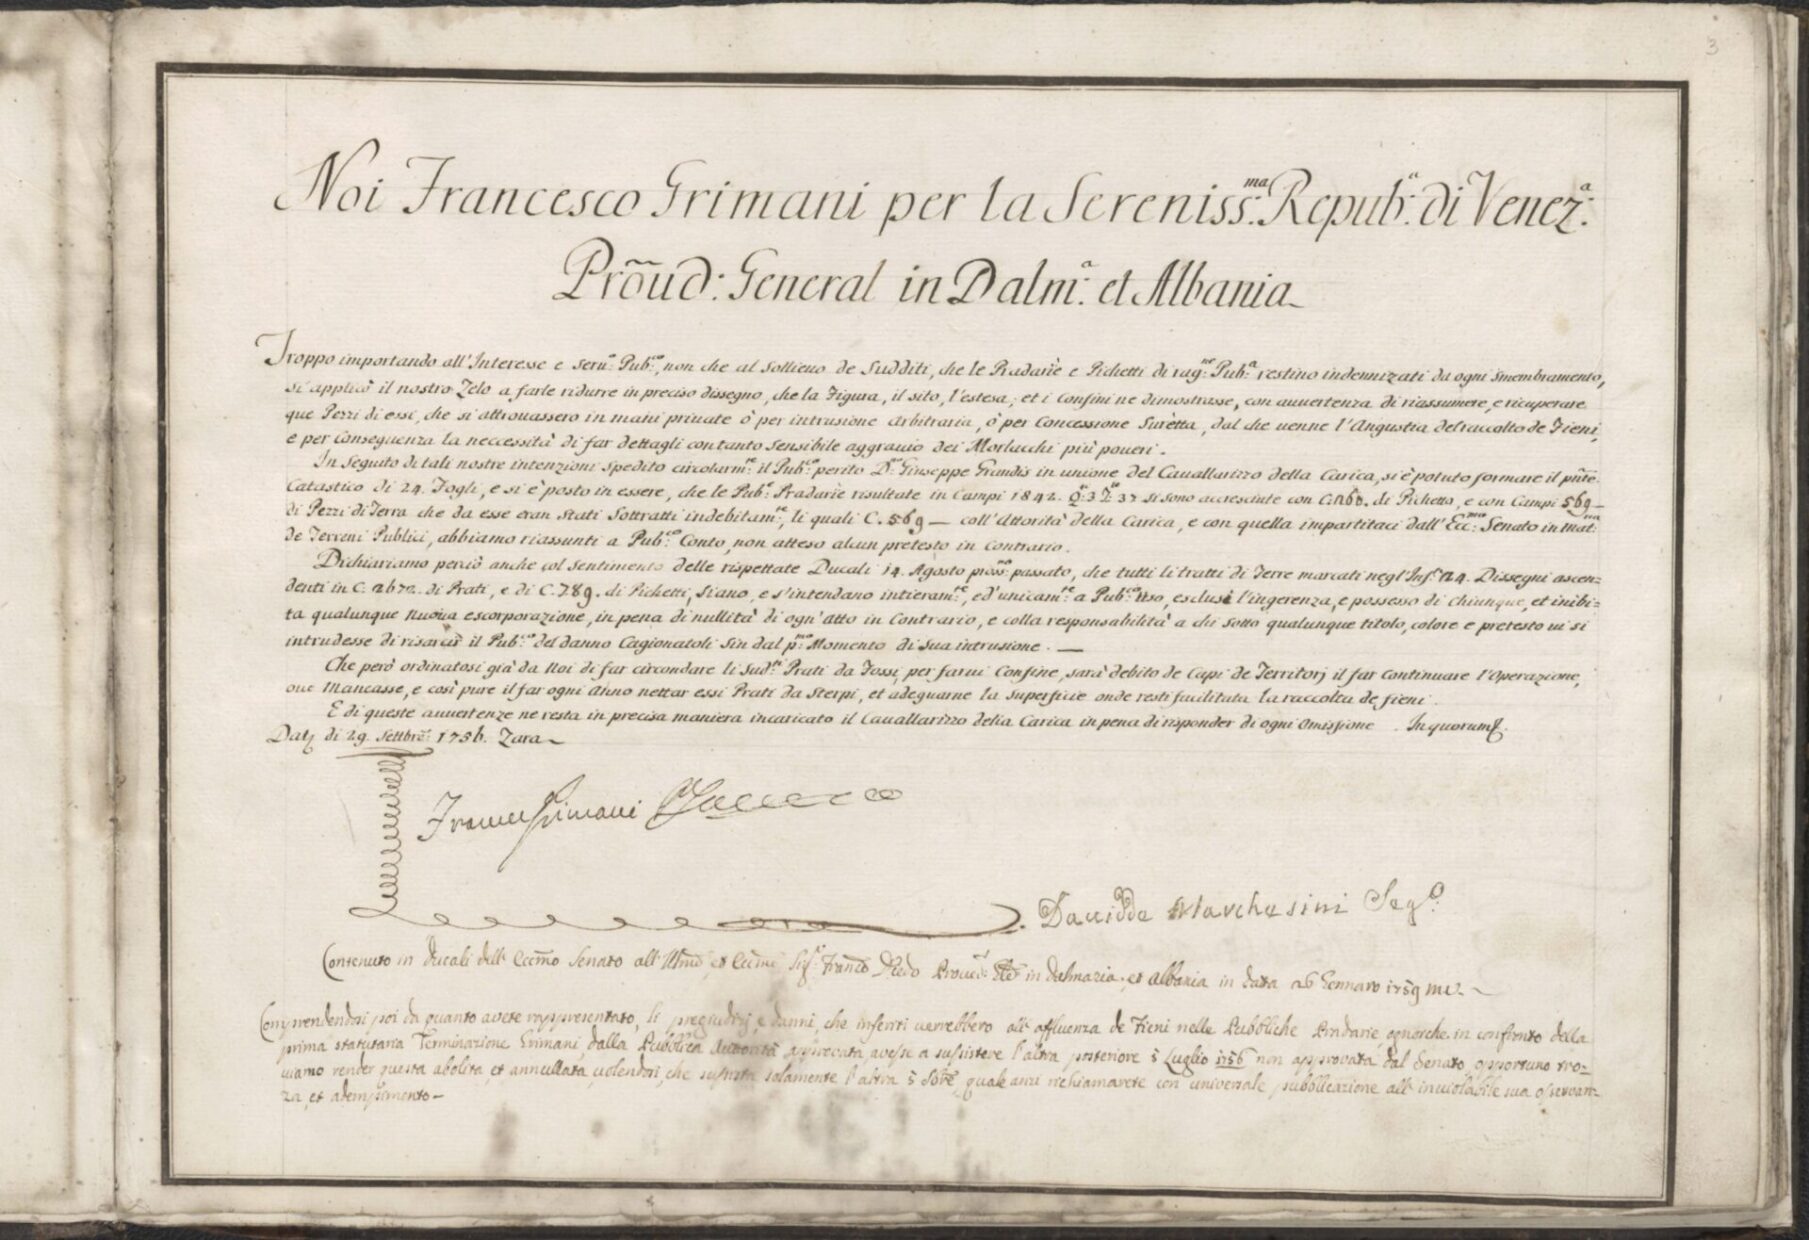 3
Noi Francesco Grimani per la Sereniss:ma Repub:a di Venez:a
Prõud: General in Dalm:a et Albania
Troppo importando all'Interesse e Seru:o Pub:co, non che al Sollieuo de Sudditi, che le Pradarie e Pichetti di rag:ne Pub:a restino indennizzati da ogni smembramento,
si applicò il nostro Zelo a farle ridurre in preciso dissegno, che la Figura, il sito, l'estesa, et i Confini ne dimostrasse, con auuertenza di riassumere, e ricuperare
que Pezzi di essi, che si attrouassero in mani priuate ò per intrusione Arbitraria, ò per Concessione Surètta, dal che uenne l'Angustia del raccolto de Fieni,
e per Conseguenza la neccessità di far dettagli con tanto Sensibile aggrauio dei Morlacchi più poueri.
In Seguito di tali nostre intenzioni Spedito circolarm:te il Pub:co perito D:n Giuseppe Grandis in unione del Cauallarizzo della Carica, si è potuto formare il pñte
Catastico di 24. Fogli, e si è posto in essere, che le Pub:e Pradarie risultate in Campi 1842. Q: 3 T: 37 si sono accresciute con C: 260. di Pichetto, e con Campi 569 —
di Pezzi di Terra che da esse eran stati Sottratti indebitam:te, li quali C. 569 — coll'Attorità della Carica, e con quella impartitaci dall'Ecc:mo Senato in mat:ria
de Terreni Publici, abbiamo riassunti a Pub:co Conto, non atteso alcun pretesto in Contrario.
Dichiariamo perciò anche col Sentimento delle rispettate Ducali 14. Agosto pross:mo passato, che tutti li tratti di Terre marcati negl'Inf:ti 24. Dissegni ascen=
denti in C. 2672. di Prati, e di C. 789. di Pichetti, siano, e s'intendano intieram:te, ed'unicam:te a Pub:co Uso, esclusa l'ingerenza, e possesso di Chiunque, et inibi=
ta qualunque nuoua escorporazione, in pena di nullità di ogn'atto in Contrario, e colla responsabilità a chi sotto qualunque titolo, colore e pretesto ui si
intrudesse di risarcir il Pub:co del danno Cagionatoli Sin dal p:mo Momento di Sua intrusione. —
Che però ordinatosi già da Noi di far circondare li Sud:ti Prati da Fossi, per farui Confine, sarà debito de Capi de Territorj il far Continuare l'Operazione,
oue Mancasse, e così pure il far ogni Anno nettar essi Prati da Sterpi, et adeguarne la Superficie onde resti facilitata la raccolta de fieni.
E di queste auuertenze ne resta in precisa maniera incaricato il Cauallarizzo della Carica in pena di risponder di ogni Omissione. In quorum
Dat: di 29. Settbrẽ: 1756. Zara —
Francesco Grimani
Dauidde Marchesini Seg:o
Contenuto in Ducali dell' Eccmo Senato all' Illmo, et Eccmo Sigr Franco Diedo Proued: Gñl in Dalmazia, et Albania in data 26 Gennaro 1759 M.V. —
Comprendendosi poi da quanto avete rappresentato, li pregiudizj e danni, che inferiti uerrebbero all' affluenza de Fieni nelle Pubbliche Pradarie, ognorche in confronto della
prima statutaria Terminazione Grimani, dalla Pubblica Autorità approvata, avesse a sussistere l'altra posteriore 5 Luglio 1756 non approvata dal Senato, opportuno tro=
uiamo render questa abolita, et annullata, uolendosi, che sussista solamente l'altra 5 Sbre, quale anzi richiamarete con universale pubblicazione all' inuiolabile sua osseruan=
za, et adempimento —